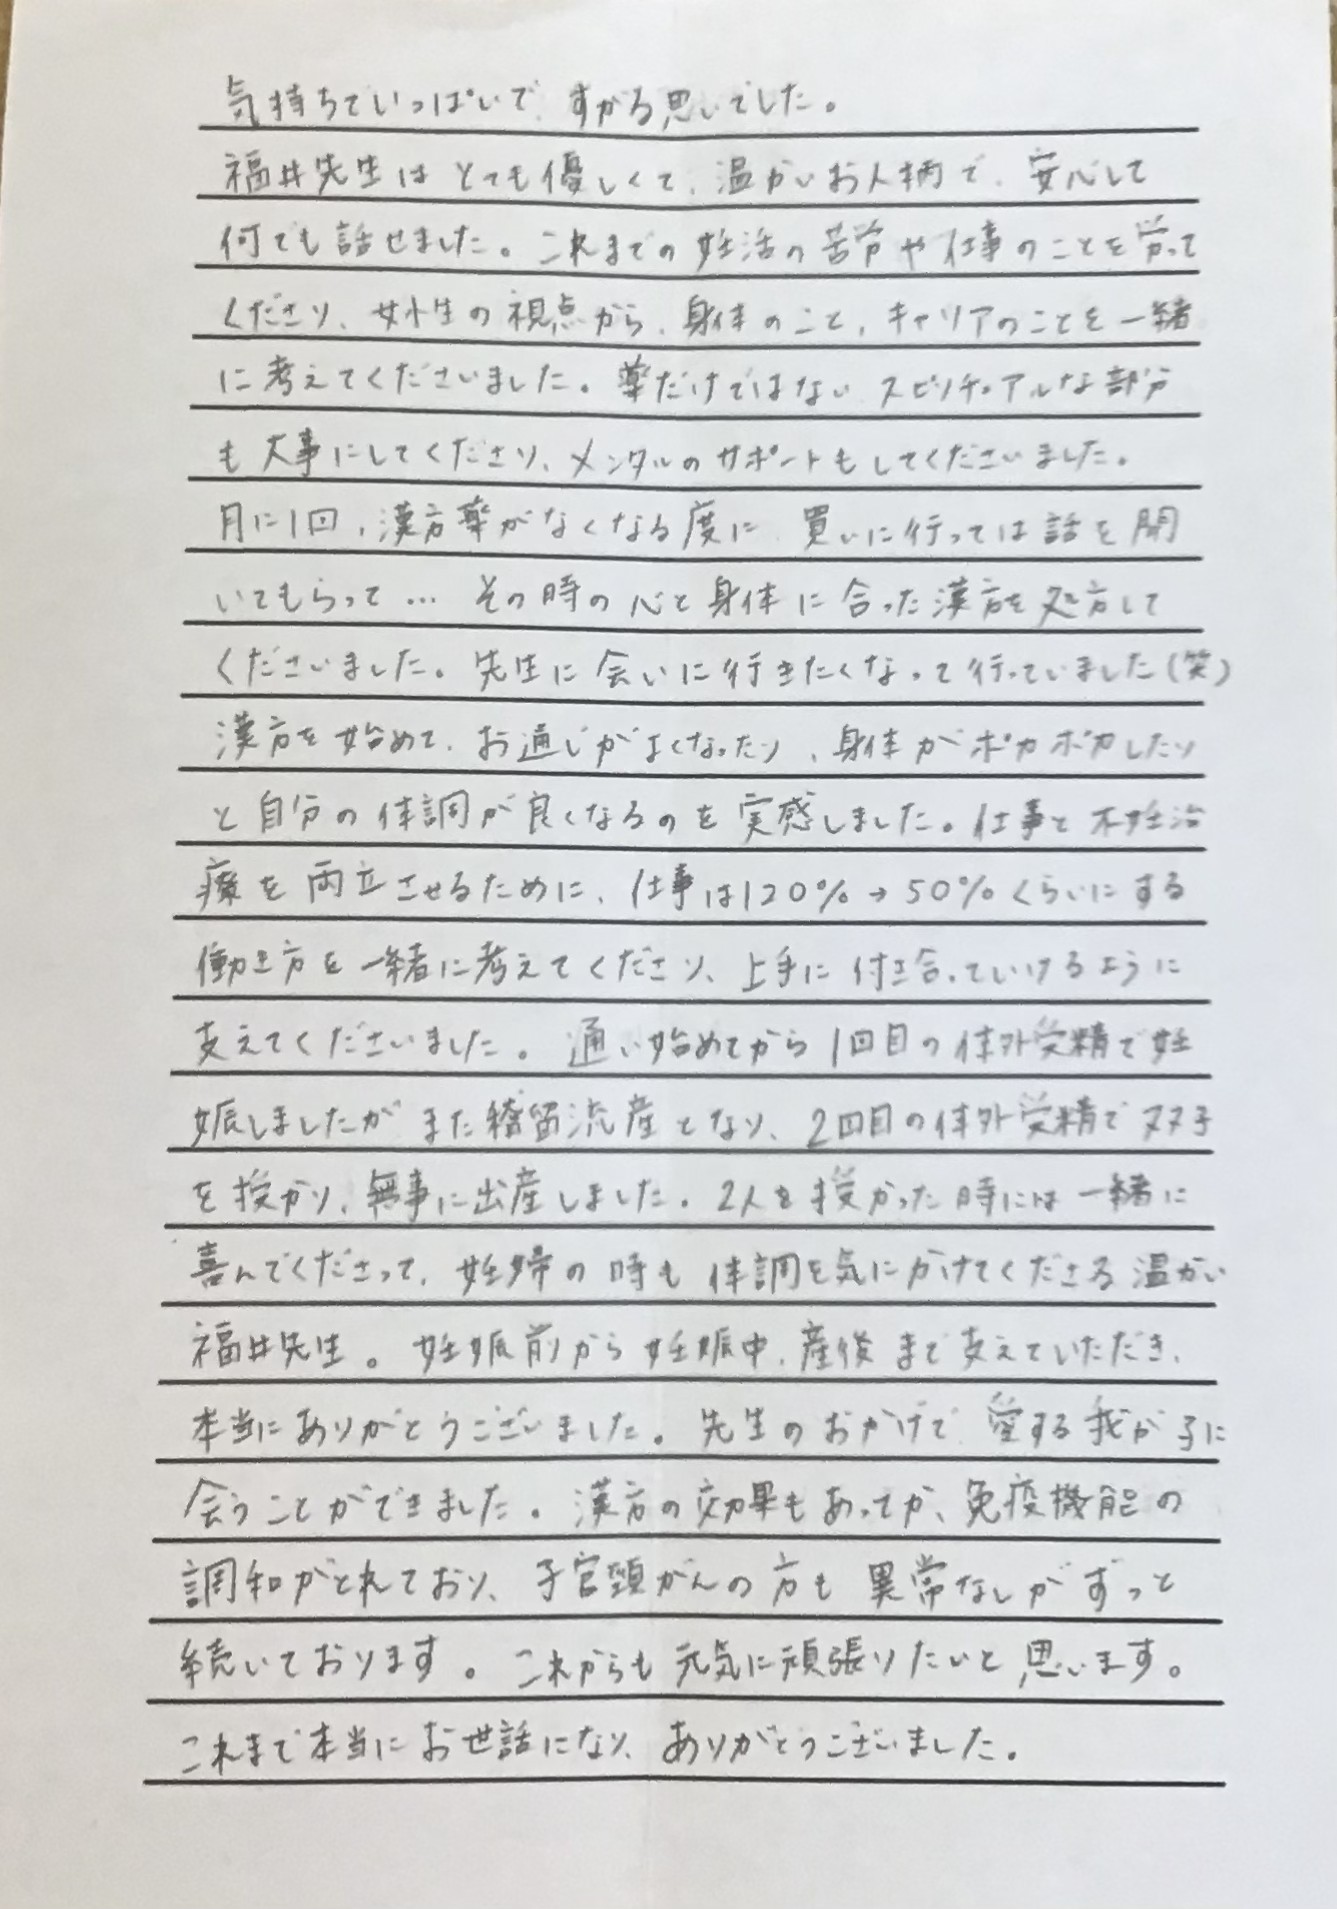 気持ちでいっぱいで、すがる思いでした。
福井先生はとても優しくて、温かいお人柄で、安心して
何でも話せました。これまでの妊活の苦労や仕事のことを労って
くださり、女性の視点から、身体のこと、キャリアのことを一緒
に考えてくださいました。薬だけではないスピリチュアルな部分
も大事にしてくださり、メンタルのサポートもしてくださいました。
月に1回、漢方薬がなくなる度に、買いに行っては話を聞
いてもらって… その時の心と身体に合った漢方を処方して
くださいました。先生に会いに行きたくなって行っていました(笑)
漢方を始めて、お通じがよくなったり、身体がポカポカしたり
と自分の体調が良くなるのを実感しました。仕事と不妊治
療を両立させるために、仕事は120%→50%くらいにする
働き方を一緒に考えてくださり、上手に付き合っていけるように
支えてくださいました。通い始めてから1回目の体外受精で妊
娠しましたがまた稽留流産となり、2回目の体外受精で双子
を授かり、無事に出産しました。2人を授かった時には一緒に
喜んでくださって、妊婦の時も体調を気にかけてくださる温かい
福井先生。妊娠前から妊娠中、産後まで支えていただき、
本当にありがとうございました。先生のおかげで愛する我が子に
会うことができました。漢方の効果もあってか、免疫機能の
調和がとれており、子宮頸がんの方も異常なしがずっと
続いております。これからも元気に頑張りたいと思います。
これまで本当にお世話になり、ありがとうございました。